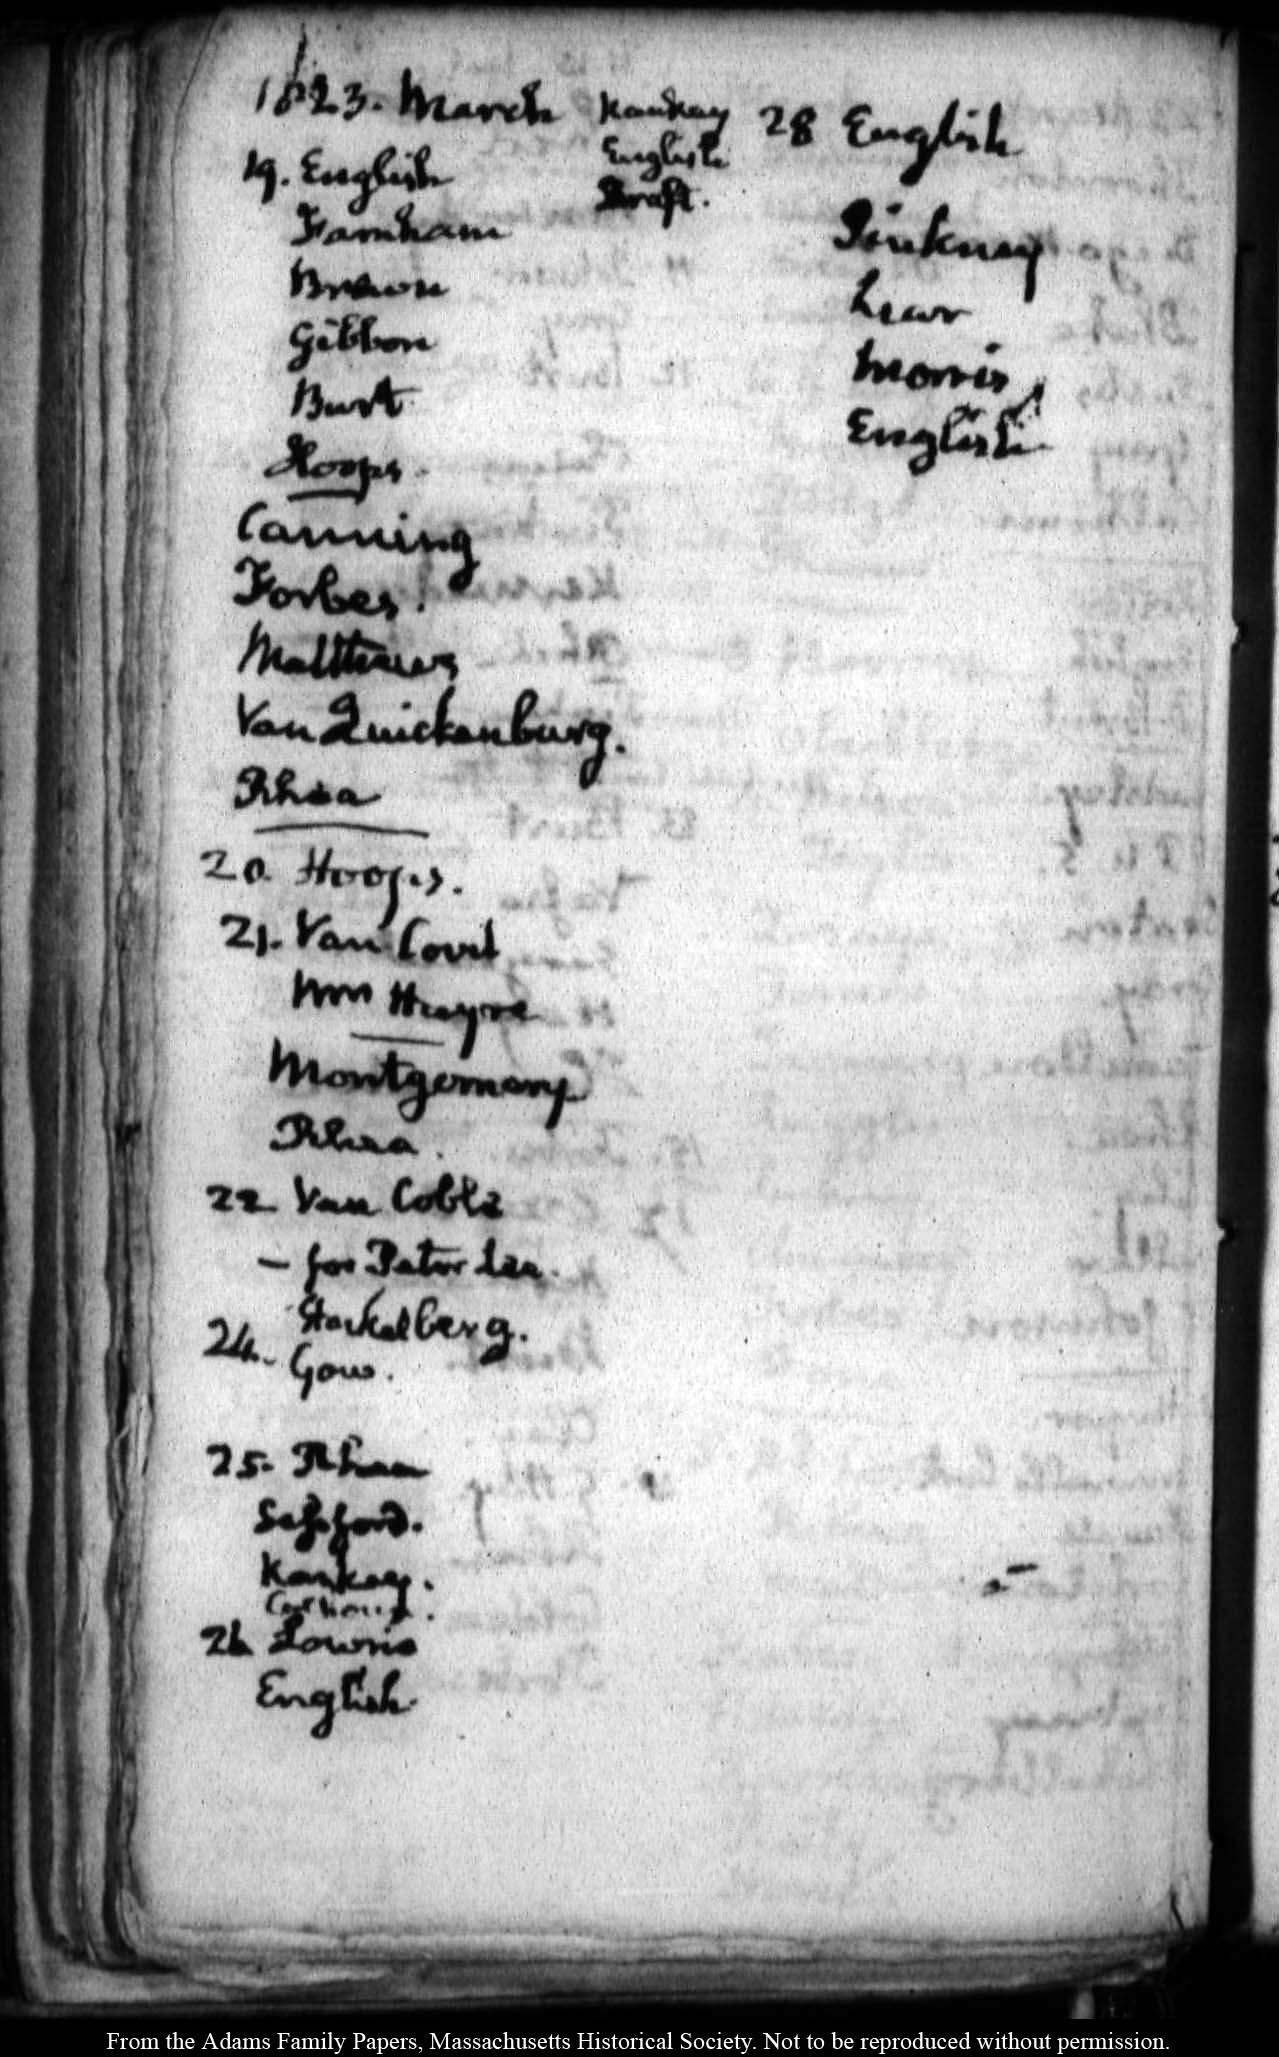 1823. March
19. English
Farnham
Brown
Gibbon
Burt
Hoops.
Canning
Forbes.
Matthews
Van Quickenburg.
Rhea
20. Hoops.
21. Van Cort
Wm
Montgomery
Rhea.
22 Van Coble
— for Peter Lea.
Stackelberg.
24. Gow.
25. Rhea
Sessford.
Kankey.
Calhoun.
26 Lowrie
English
Kankey
English
Draft.
28 English
Pinkney
Lear
Morris
English
From the Adams Family Papers, Massachusetts Historical Society. Not to be reproduced without permission.